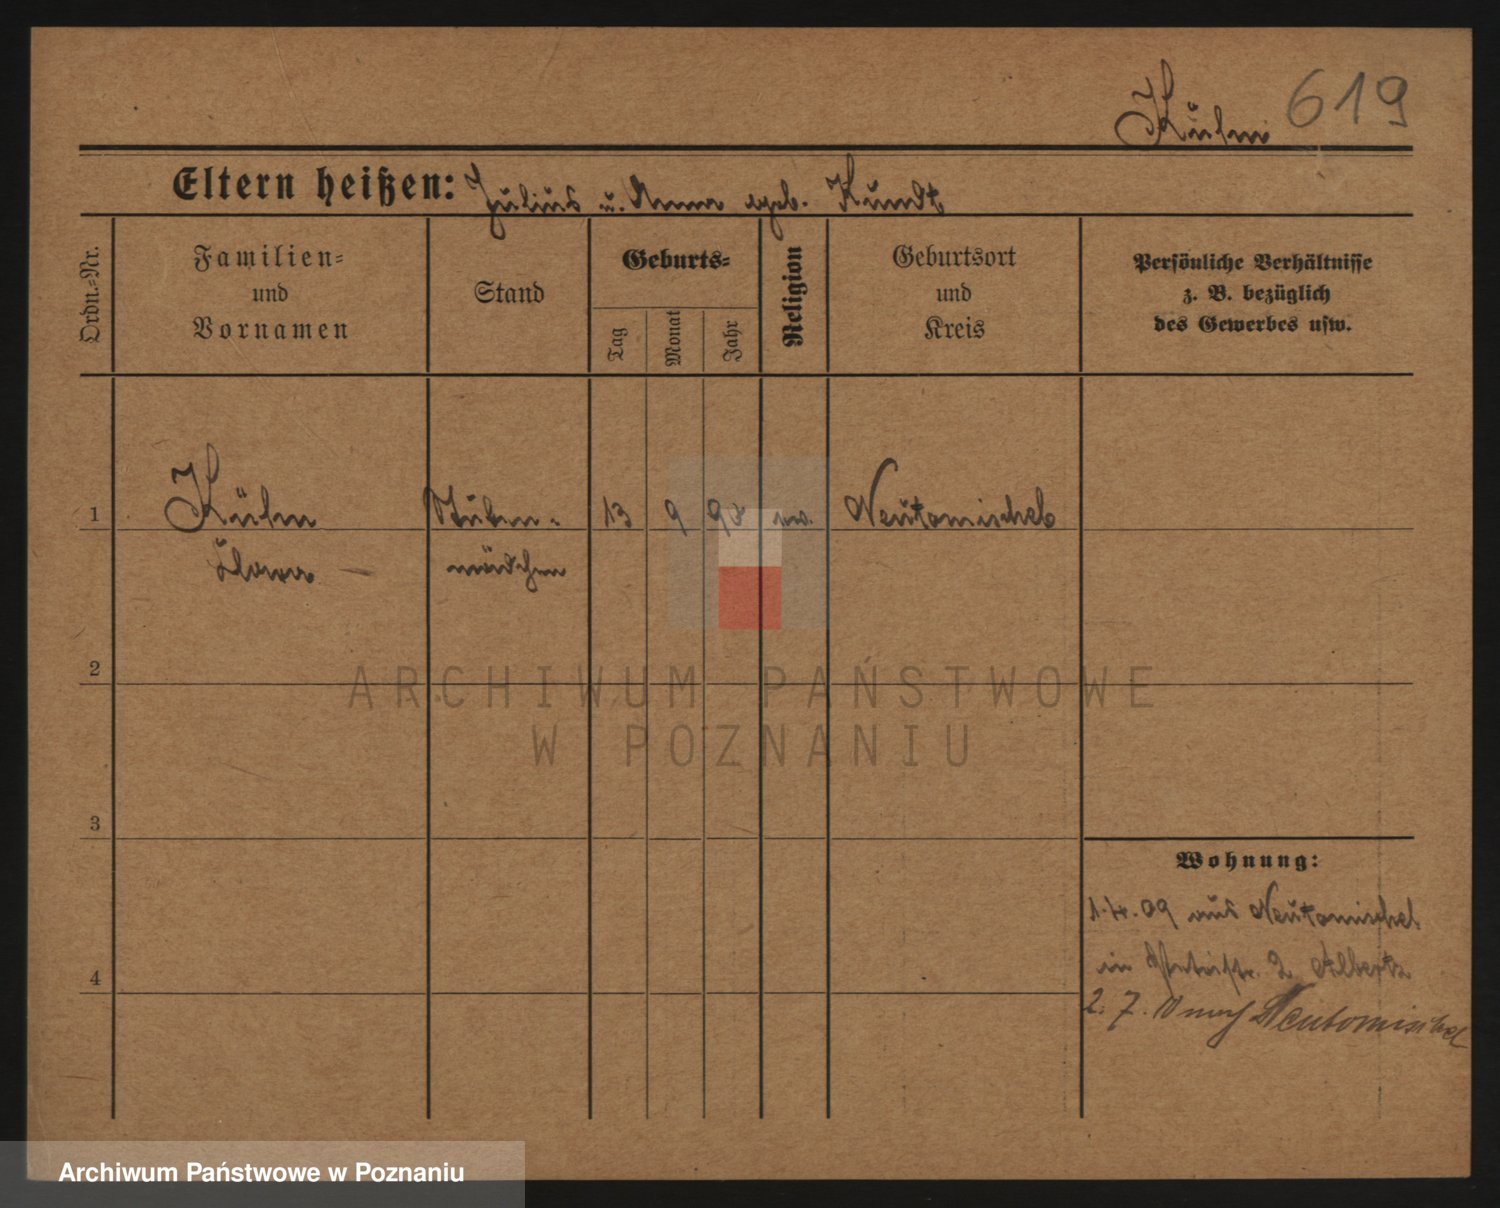 Kühn 619
Eltern heißen: Julius u. Anna geb. Kundt
Ordn.-Nr.
Familien-
und
Vornamen
Stand
Geburts-
Tag
Monat
Jahr
Religion
Geburtsort
und
Kreis
Persönliche Verhältnisse
z. B. bezüglich
des Gewerbes usw.
1 Kühn Stuben- 13 9 93 ev. Neutomischel
mädchen
2
ARCHIWUM PAŃSTWOWE
W POZNANIU
3
Wohnung:
1.4.09 aus Neutomischel
in 2 Alberts
4
2. 7. 10 nach Neutomischel
Archiwum Państwowe w Poznaniu